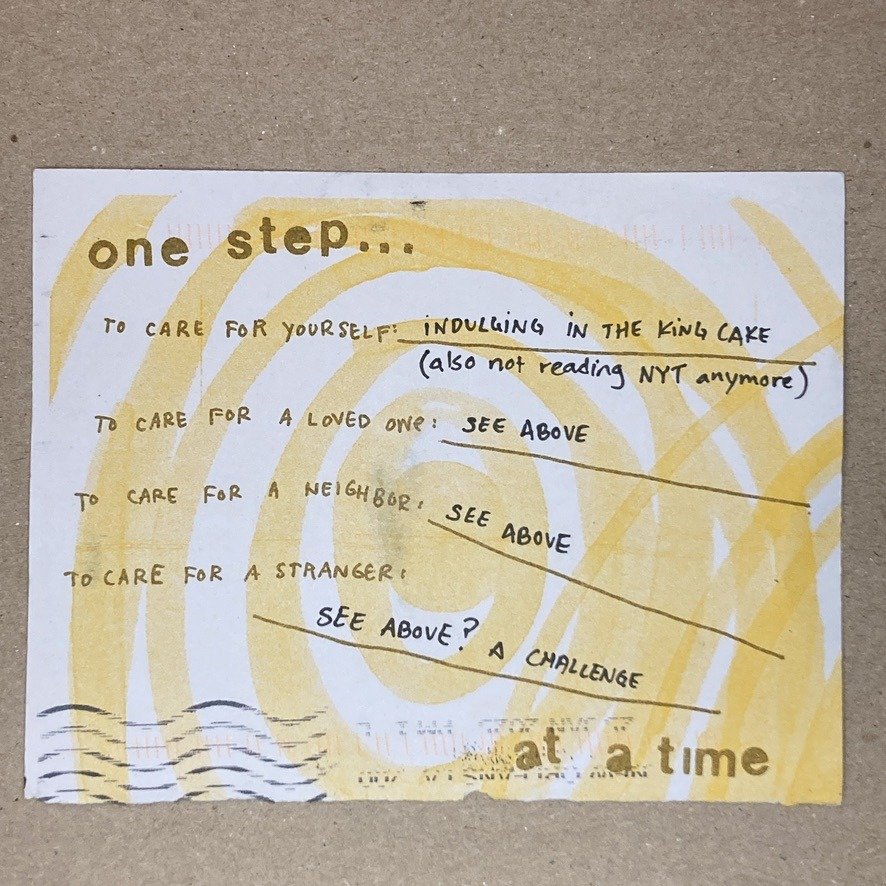 one step...
TO CARE FOR YOURSELF: INDULGING IN THE KING CAKE
(also not reading NYT anymore)
TO CARE FOR A LOVED ONE: SEE ABOVE
TO CARE FOR A NEIGHBOR: SEE ABOVE
TO CARE FOR A STRANGER:
SEE ABOVE? A CHALLENGE
at a time